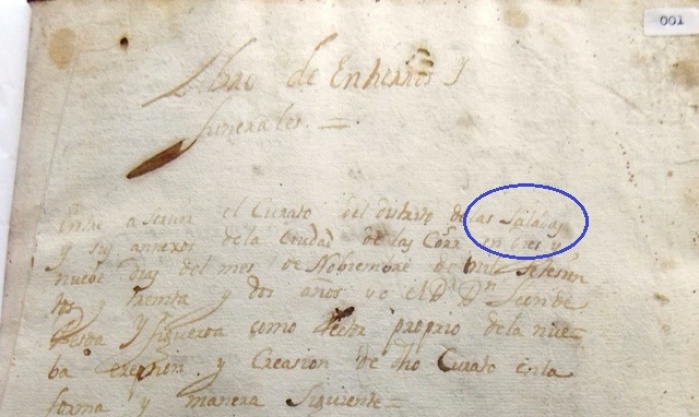 001
Libro de Entierros y
funerales =
Entre a servir el Curato del distrito de las Saladas
y sus annexos de la Ciudad de las Corr.s en bies y
nuebe dias del mes de Nobiembre de mil setesien
tos y treinta y dos años yo el D.r D.n
y Figueroa como Rector proprio de la nue=
ba ereption y Creasion de dho Curato en la
forma y manera siguiente=